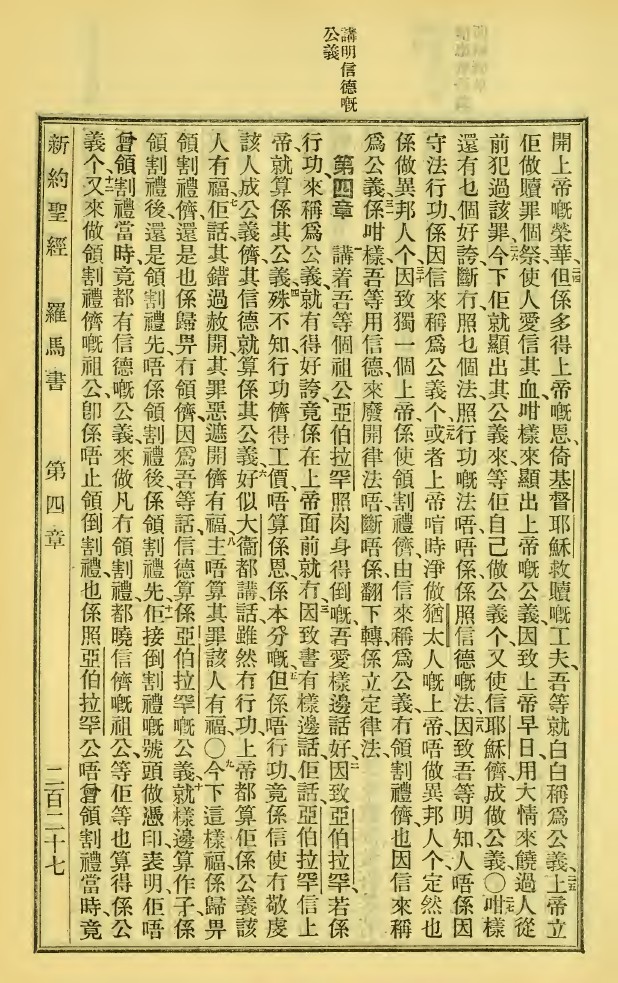 講明信德嘅
公義
開上帝嘅榮華但係多得上帝嘅恩、倚基督耶穌救贖嘅工夫、吾等就白白稱爲公義、上帝立
佢做贖罪個祭使人愛信其血、咁樣來顯出上帝嘅公義、因致上帝早日、用大情來饒過人從
前犯過該罪、今下佢就顯出其公義來、等佢自己做公義个、又使信耶穌儕成做公義〇咁樣
還有乜個好誇、斷冇照乜個法、照行功嘅法唔、唔係、係照信德嘅法、因致吾等明知、人唔係因
守法行功、係因信來稱爲公義个、或者上帝啀時淨做猶太人嘅上帝、唔做異邦人个、定然也
係做異邦人个、因致獨一個上帝、係使領割禮儕、由信來稱爲公義、冇領割禮儕、也因信來稱
爲公義、係咁樣、吾等用信德、來廢開律法唔、斷唔係、翻下轉、係立定律法、
第四章 講着吾等個祖公亞伯拉罕、照肉身得倒嘅、吾愛樣邊話好、因致亞伯拉罕、若係
行功、來稱爲公義、就有得好誇、竟係在上帝面前就冇、因致書有樣邊話、佢話、亞伯拉罕信上
帝、就算係其公義、殊不知行功儕得工價、唔算係恩、係本分嘅、但係唔行功、竟係信使冇敬虔
該人成公義儕、其信德就算係其公義、好似大衞都講話、雖然冇行功、上帝都算佢係公義、該
人有福、佢話、其錯過赦開、其罪惡遮開儕有福、主唔算其罪、該人有福、〇今下這樣福、係歸畀
領割禮儕、還是也係歸畀冇領儕、因爲吾等話、信德算係亞伯拉罕嘅公義、就樣邊算作、子係
領割禮後、還是領割禮先、唔係領割禮後、係領割禮先、佢接倒割禮嘅號頭做憑印、表明佢唔
曾領割禮當時、竟都有信德嘅公義、來做凡冇領割禮、都曉信儕嘅祖公、等佢等也算得係公
義个、又來做領割禮儕嘅祖公、卽係唔止領倒割禮、也係照亞伯拉罕公唔曾領割禮當時、竟
新約聖經 羅馬書 第四章 二百二十七